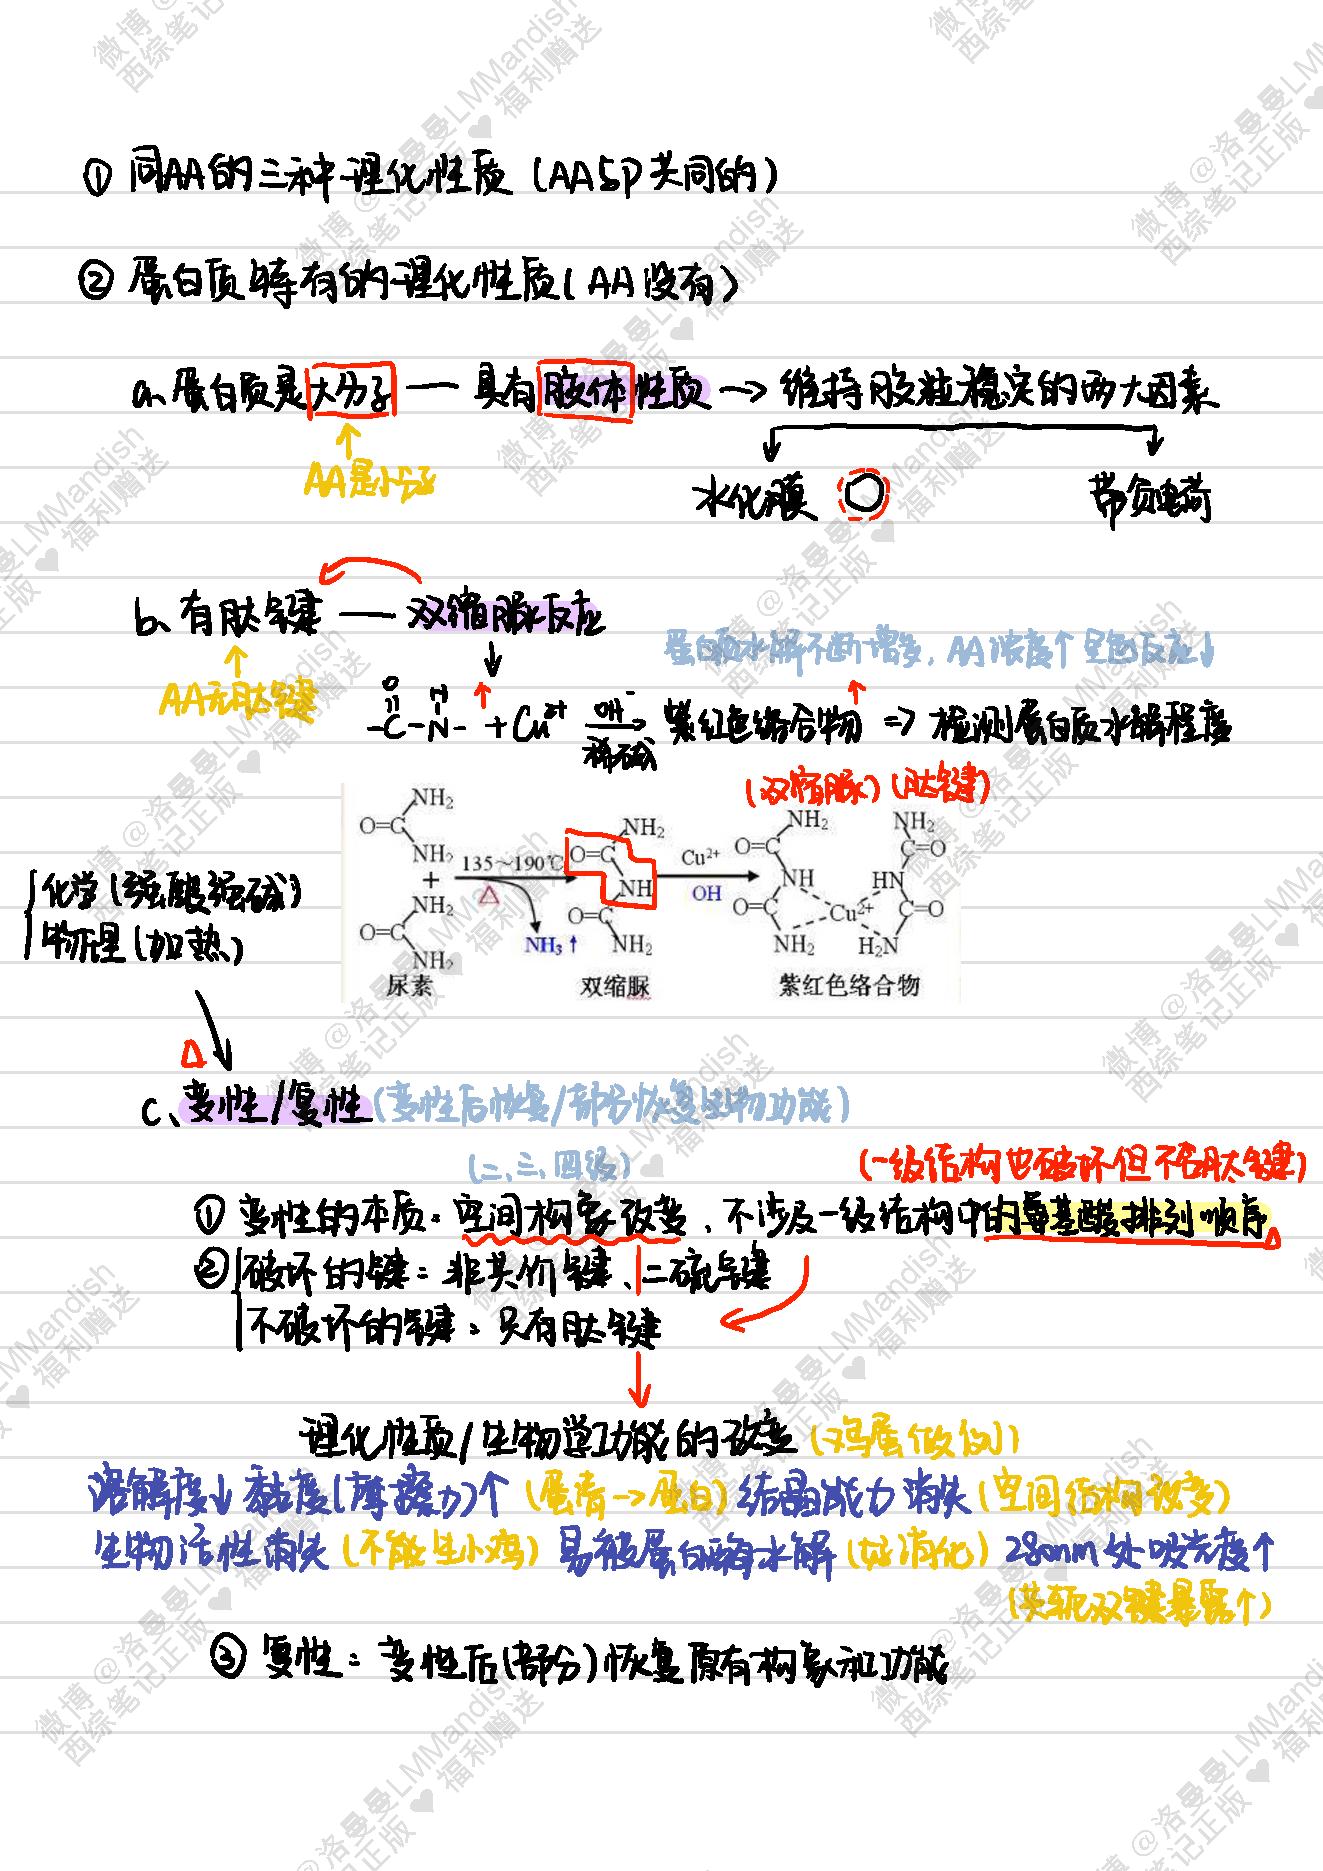 ① 同AA的三种理化性质（AA与P共同的）
② 蛋白质特有的理化性质（AA没有）
a、蛋白质是大分子 — 具有胶体性质 → 维持胶粒稳定的两大因素
AA是小分子
水化膜
带负电荷
b、有肽键 — 双缩脲反应
蛋白质水解不断增多，AA浓度↑ 呈色反应↓
AA无肽键
O H
-C-N- + Cu²⁺ OH⁻ 稀碱 → 紫红色络合物 => 检测蛋白质水解程度
（双缩脲）（肽键）
NH₂ O=C NH₂ + NH₂ O=C NH₂ 尿素
135～190℃ △ NH₃↑
NH₂ O=C NH O=C NH₂ 双缩脲
Cu²⁺ OH
NH₂ O=C NH O=C NH₂ Cu²⁺ NH₂ C=O HN C=O H₂N 紫红色络合物
化学（强酸强碱）
物理（加热）
△
c、变性/复性（变性后恢复/部分恢复生物功能）
（二、三、四级）
（一级结构也破坏但不含肽键）
① 变性的本质：空间构象改变、不涉及一级结构中的氨基酸排列顺序
② 破坏的键：非共价键、二硫键
不破坏的键：只有肽键
理化性质/生物学功能的改变（鸡蛋做例）
溶解度↓ 黏度（摩擦力）↑（蛋清→蛋白）结晶能力消失（空间结构改变）
生物活性消失（不能生小鸡）易被蛋白酶水解（好消化）280nm处吸光度↑
（共轭双键暴露↑）
③ 复性：变性后（部分）恢复原有构象和功能
微博@洛曼曼LMMandish
西综笔记正版♥福利赠送